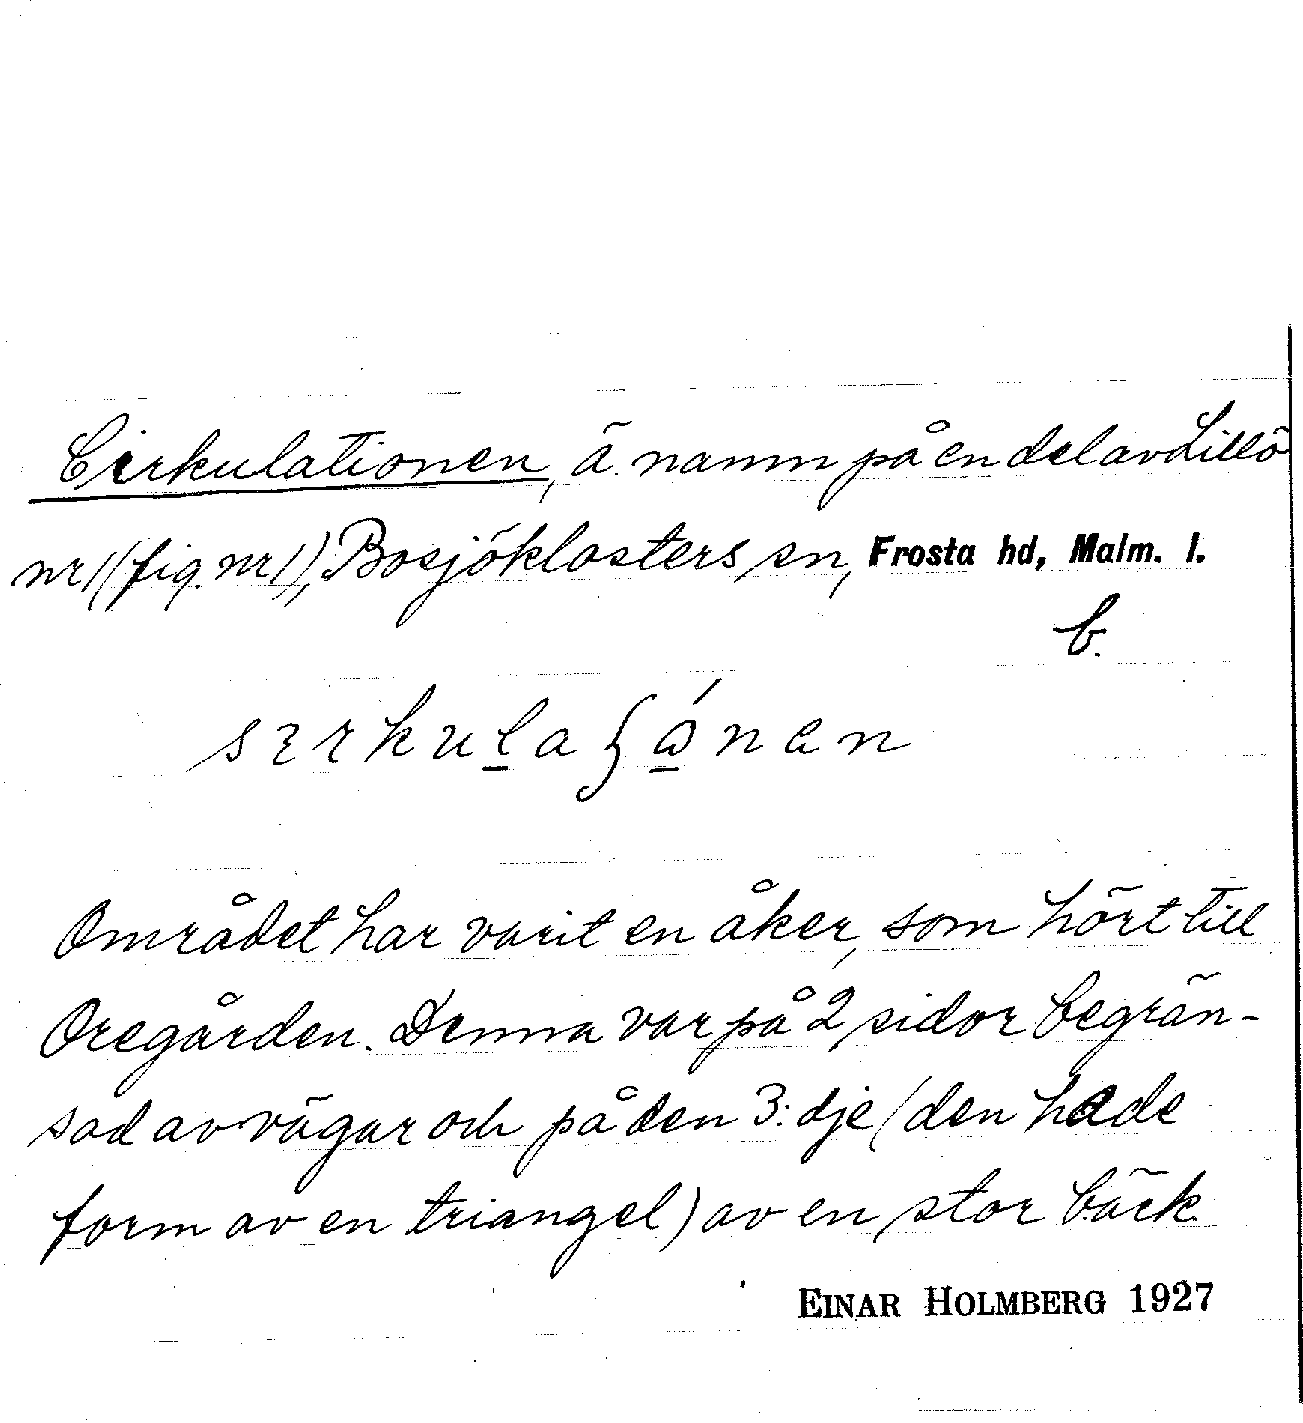 Cirkulationen, ä. namn på en del av Lillö
nr 1 (fig. nr 1), Bosjöklosters sn, Frosta hd, Malm. l.
b.
Området har varit en åker, som hört till
Oregården. Denna var på 2 sidor begrän-
sad av vägar och på den 3:dje (den hade
form av en triangel) av en stor bäck.
EINAR HOLMBERG 1927